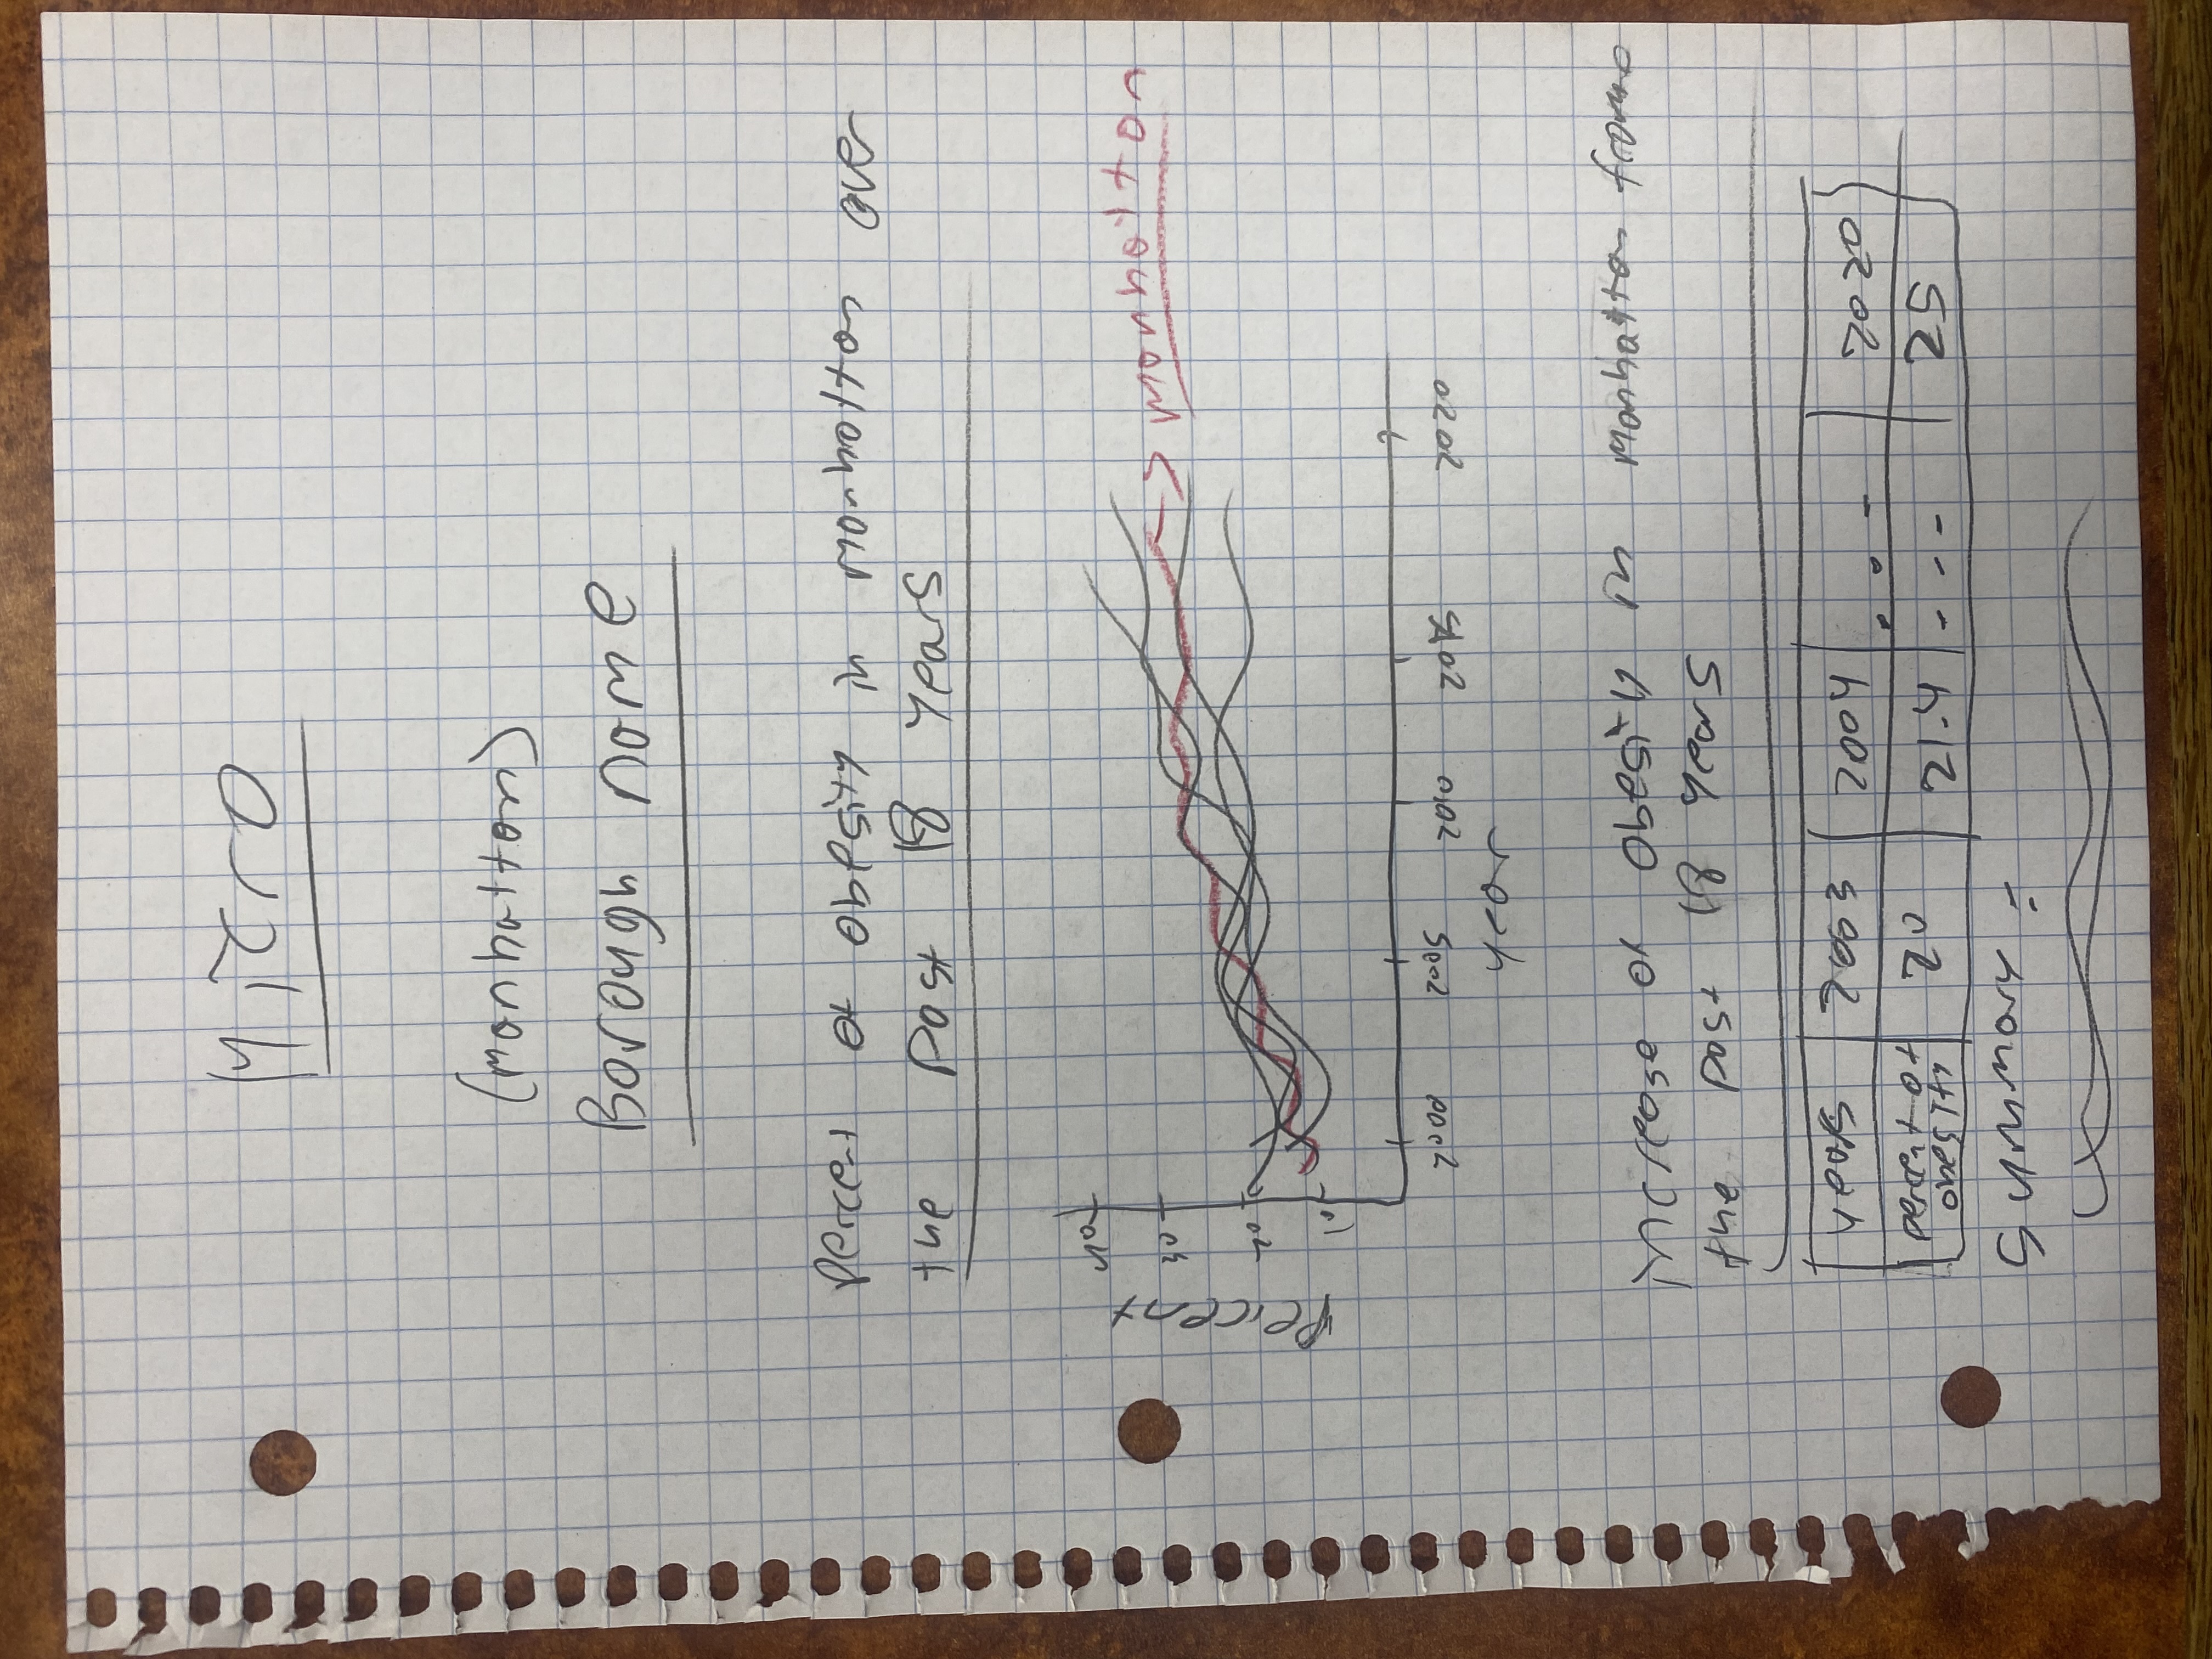 Micro
(manhattan)
Borough name
Percent of obesity in manhattan over
the past 18 years
Percent
40
30
20
10
manhattan
2000 2005 2010 2015 2020
year
increase of obesity in manhattan from
the past 18 years
years 2003 2004 ... 2020
percent of obesity 20 21.4 --- 25
Summary :